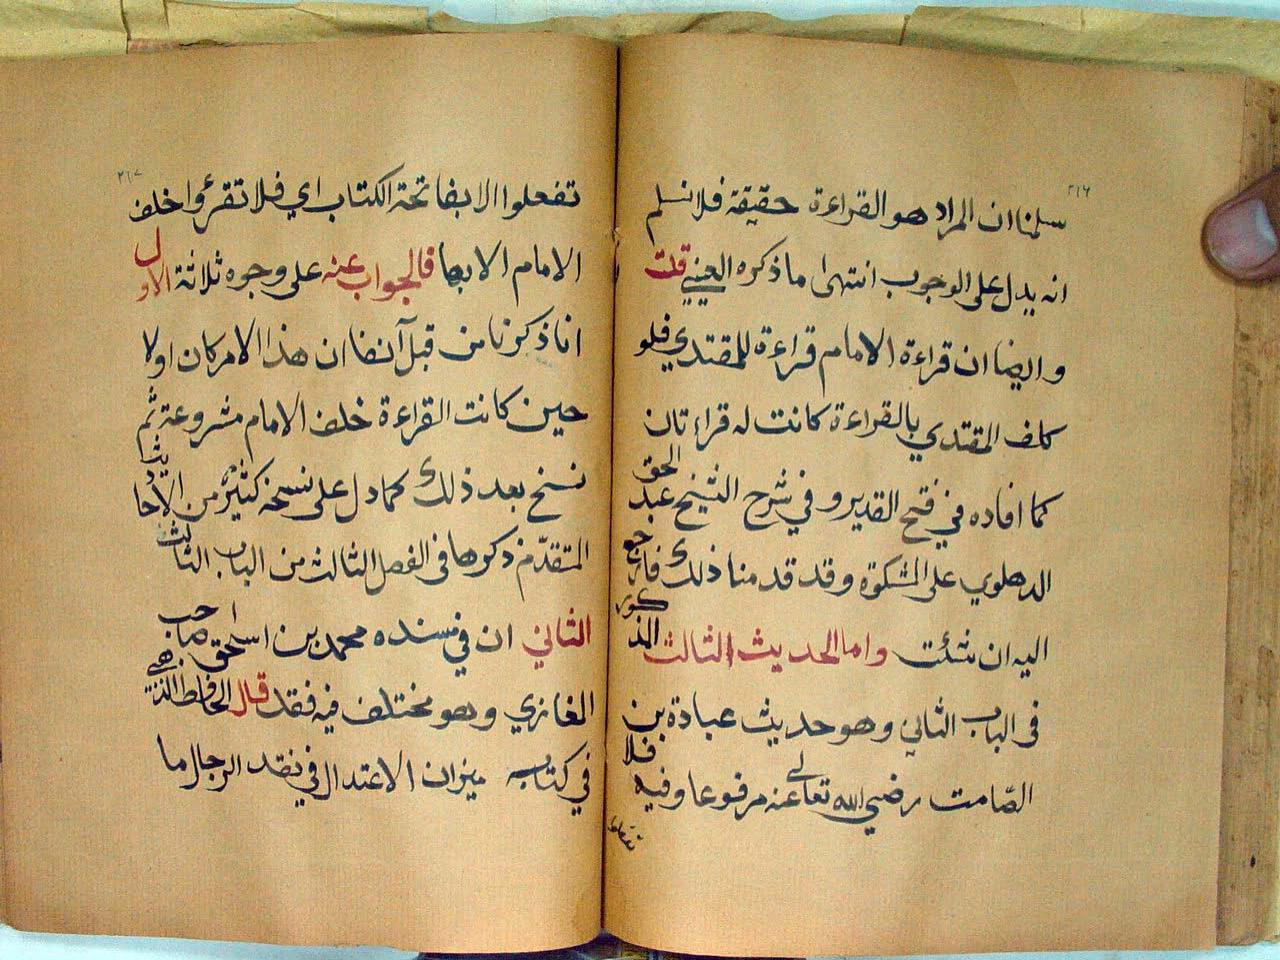 ٢١٦
سلمنا ان المراد هو القراءة حقيقة فلا نسلم
انه يدل على الوجوب انتهى ما ذكره العيني قلت
وايضا ان قراءة الامام قراءة للمقتدي فلو
كلف المقتدي بالقراءة كانت له قراءتان
كما افاده في فتح القدير وفي شرح الشيخ عبد الحق
الدهلوي على المشكوة وقد قدمنا ذلك فارجع
اليه ان شئت واما الحديث الثالث المذكور
في الباب الثاني وهو حديث عبادة بن
الصّامت رضي الله تعالى عنه مرفوعا وفيه فلا
تفعلوا
٢١٧
تفعلوا الا بفاتحة الكتاب اي فلا تقرؤا خلف
الامام الا بها فالجواب عنه على وجوه ثلاثة الاول
انا ذكرنا من قبل آنفا ان هذا الامر كان اولا
حين كانت القراءة خلف الامام مشروعة ثم
نسخ بعد ذلك كما دل على نسخه كثير من الاحاديث
المتقدّم ذكرها في الفصل الثالث من الباب الثالث
الثاني ان في سنده محمد بن اسحق صاحب
المغازي وهو مختلف فيه فقد قال الحافظ الذهبي
في كتابه ميزان الاعتدال في نقد الرجال ما